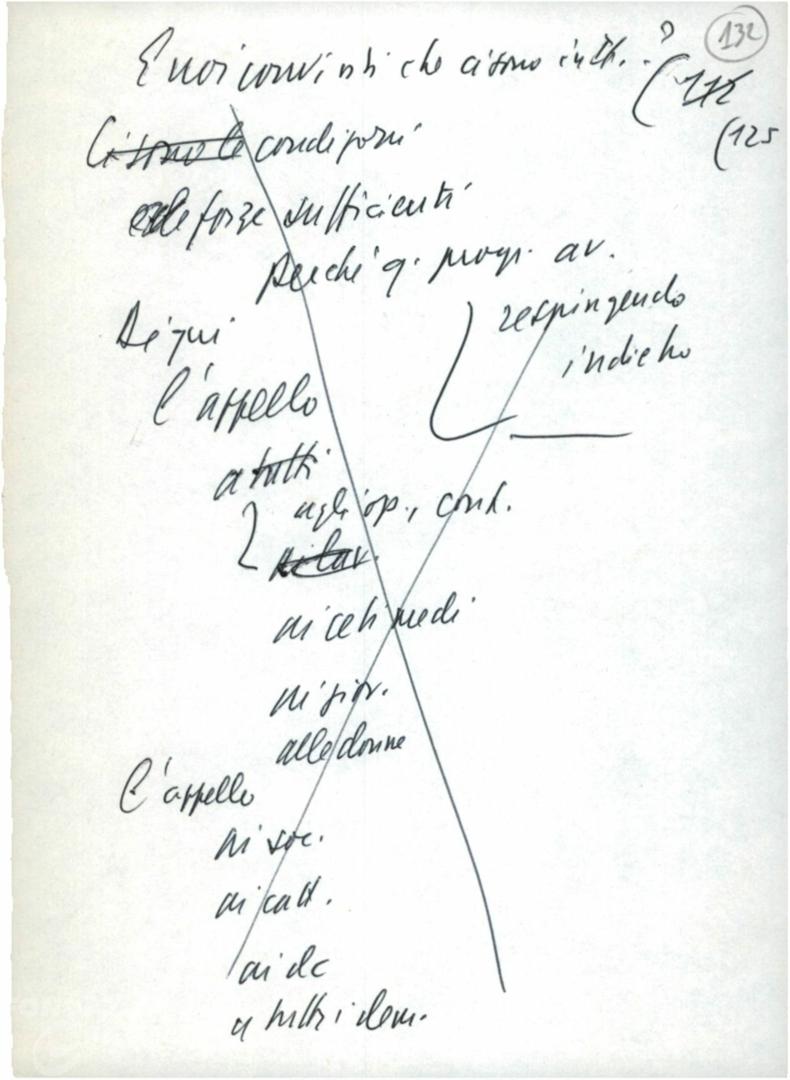 132
E noi convinti che ci sono tutt. ?
(112
(125
Ci sono le condizioni
e le forze sufficienti
perché q. progr. av.
respingendo
indietro
Di qui
l'appello
a tutti
agli op., cont.
ai lav.
ai ceti medi
ai giov.
alle donne
L'appello
ai soc.
ai catt.
ai dc
a tutti i dem.